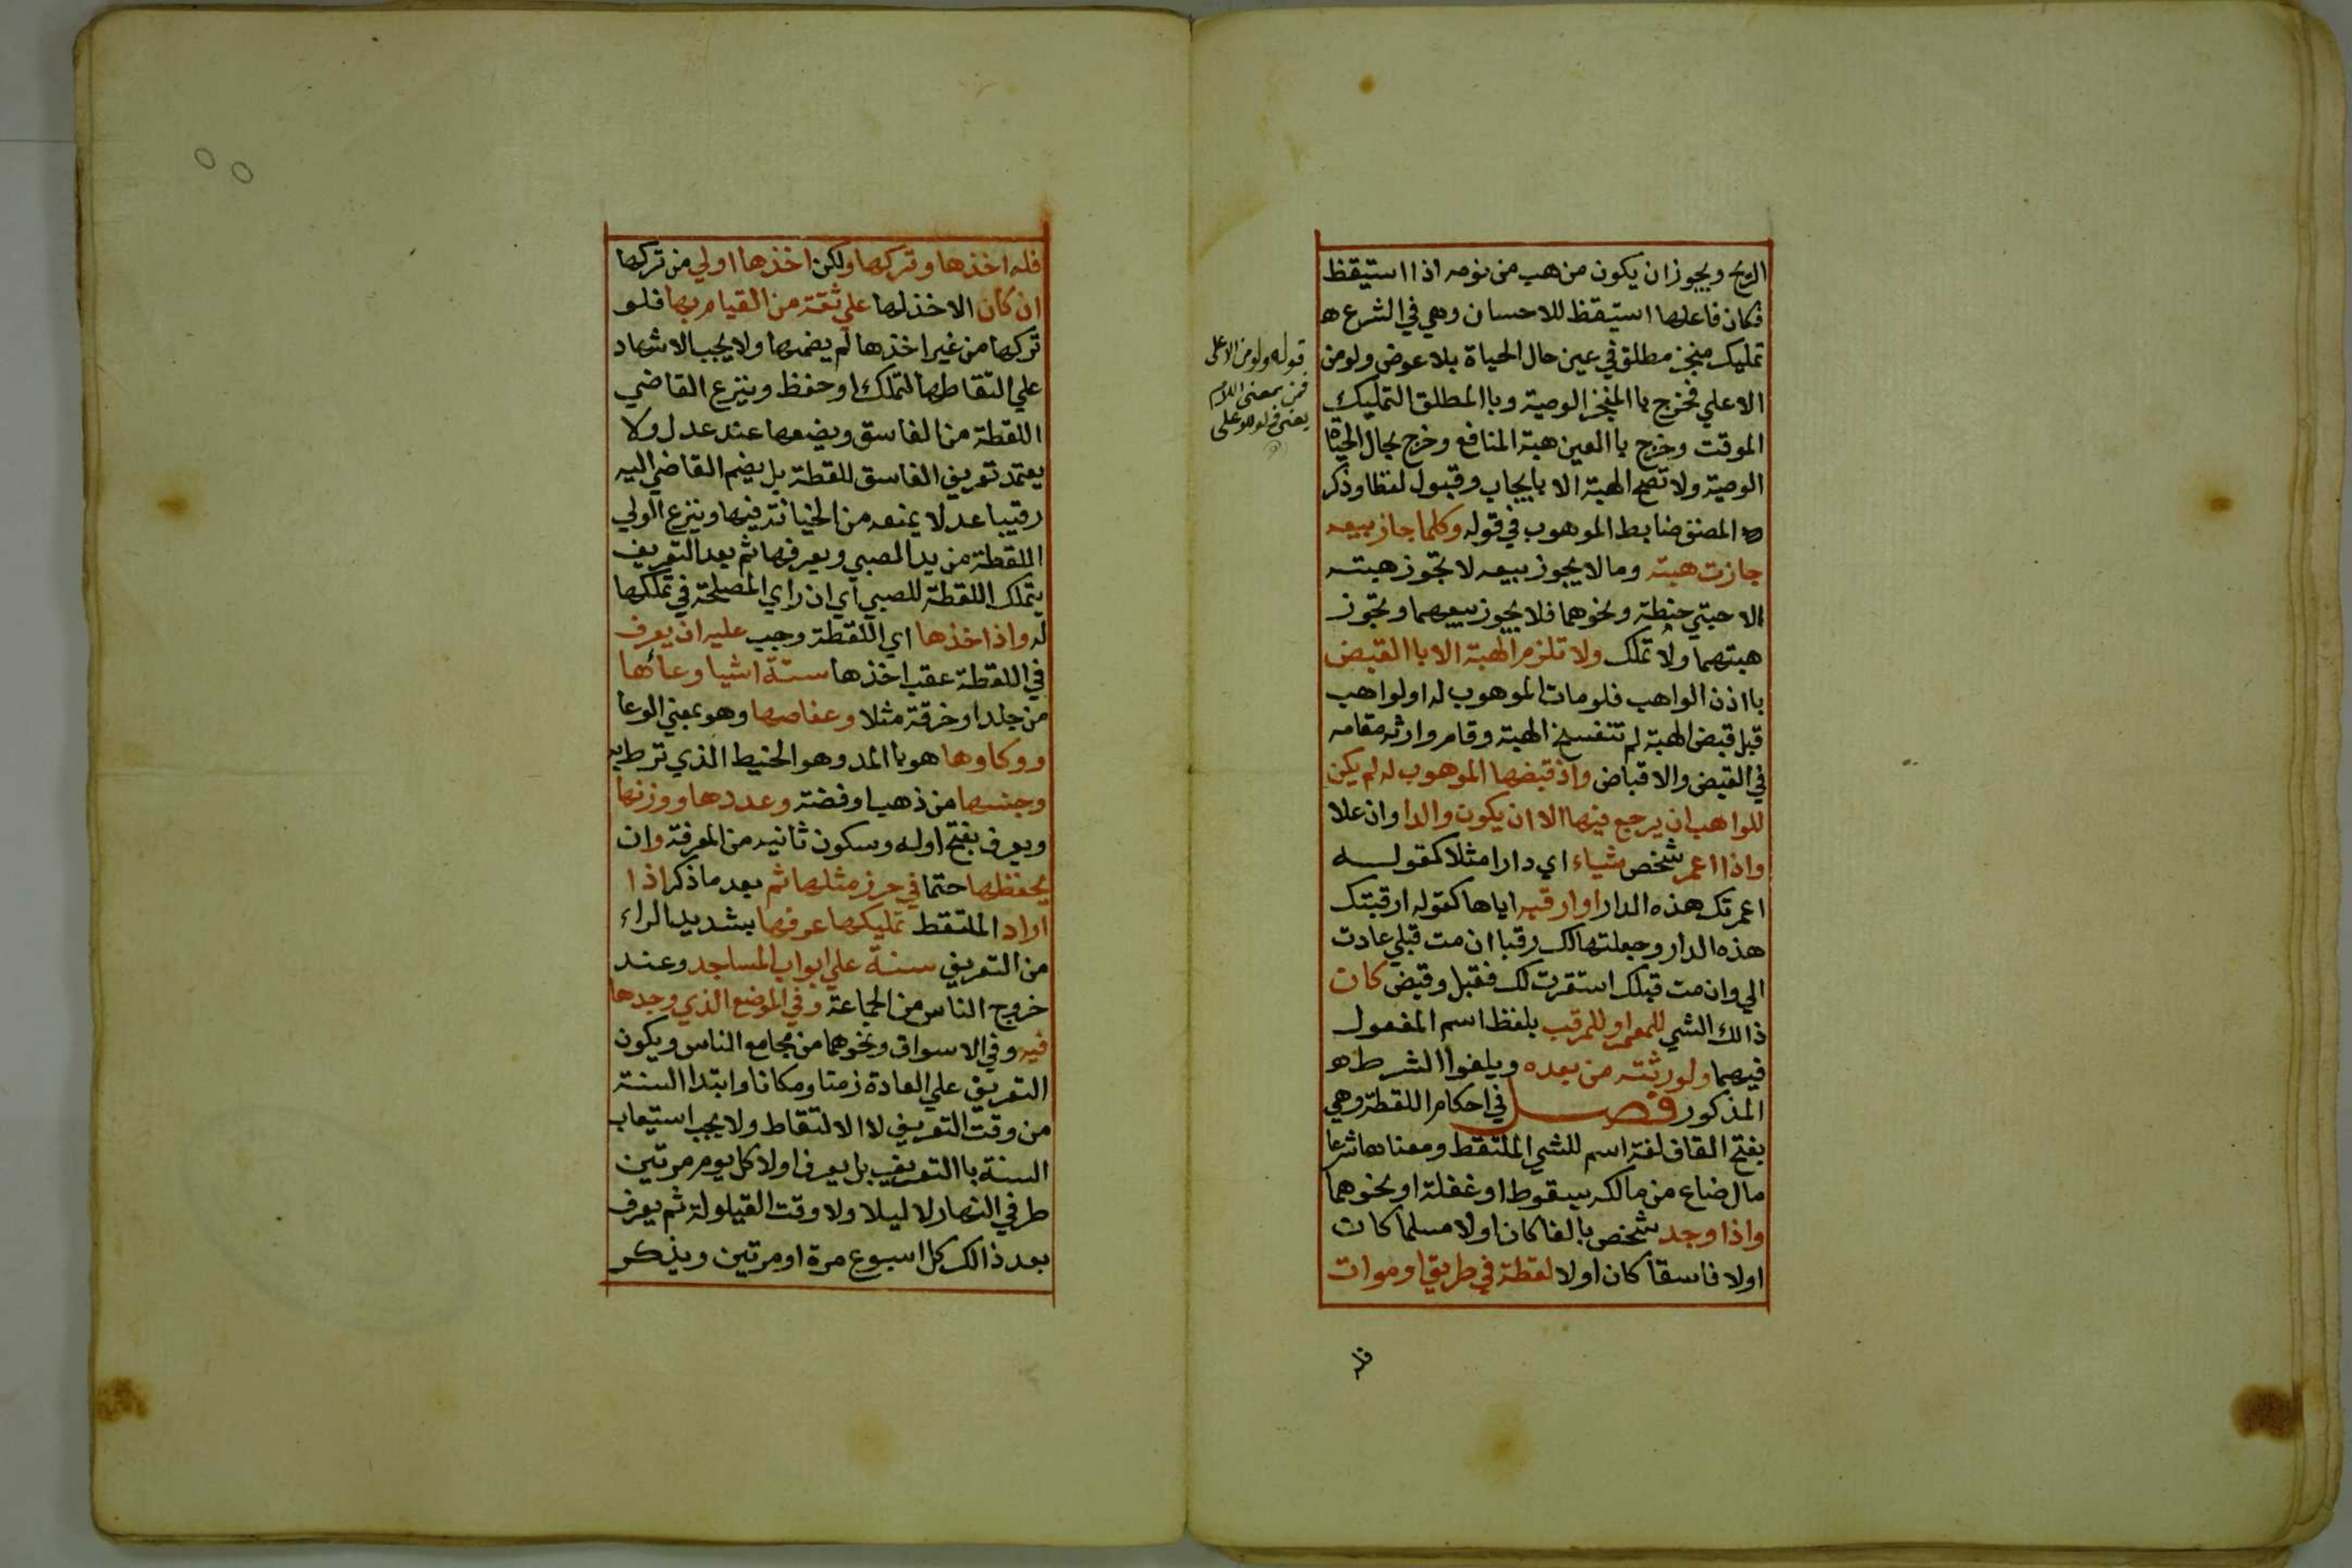 الريح ويجوز ان يكون من هب من نومه اذا استيقظ
فكان فاعلها استيقظ للاحسان وهي في الشرع ه
تمليك منجز مطلق في عين حال الحياة بلا عوض ولو من
الاعلي فخرج با المنجز الوصية وبا المطلق التمليك
الموقت وخرج با العين هبة المنافع وخرج بحال الحياة
الوصية ولا تصح الهبة الا بايجاب وقبول لفظا وذكر
المصنف ضابط الموهوب في قوله وكلما جاز بيعه
جازت هبته وما لا يجوز بيعه لا تجوز هبته
الا حبتي حنطة ونحوهما فلا يجوز بيعهما وتجوز
هبتهما ولا تملك ولا تلزم الهبة الا با القبض
با اذن الواهب فلو مات الموهوب له او لواهب
قبل قبض الهبة لم تنفسخ الهبة وقام وارثه مقامه
في القبض والاقباض واذ قبضها الموهوب له لم يكن
للواهب ان يرجع فيها الا ان يكون والدا وان علا
واذا اعمر شخص شياء اي دارا مثلا كقولـــه
اعمرتك هذه الدار او ارقبه اياها كقوله ارقبتك
هذه الدار وجعلتها لك رقبا ان مت قبلي عادت
الي وان مت قبلك استقرت لك فقبل وقبض كان
ذالك الشي للمعمر او للمرقب بلفظ اسم المفعول
فيهما ولورثته من بعده ويلغوا الشرط ه
المذكور فصــــل في احكام اللقطة وهي
بفتح القاف لغة اسم للشي الملتقط ومعناها شرعا
مال ضاع من مالكه بسقوط او غفلة او نحوهما
واذا وجد شخص بالغا كان اولا مسلما كان
اولا فاسقا كان اولا لقطة في طريق او موات
فله
قوله ولو من الاعلى
فمن بمعنى اللام
يعني ولو للاعلى
فله اخذها وتركها ولكن اخذها اولي من تركها
ان كان الاخذ لها علي ثقة من القيام بها فلو
تركها من غير اخذها لم يضمنها ولا يجب الاشهاد
علي التقاطها لتملك او حفظ وينزع القاضي
اللقطة من الفاسق ويضعها عند عدل ولا
يعتمد تعريف الفاسق للقطة بل يضم القاضي اليه
رقيبا عدلا يمنعه من الخيانة فيها وينزع الولي
اللقطة من يد الصبي ويعرفها ثم بعد التعريف
يتملك اللقطة للصبي اي ان راي المصلحة في تملكها
له واذا اخذها اي اللقطة وجب عليه ان يعرف
في اللقطة عقب اخذها ستة اشيا وعائها
من جلد او خرقة مثلا وعفاصها وهو بمعني الوعا
ووكاوها هو با المد وهو الخيط الذي تربط به
وجنسها من ذهب او فضة وعددها ووزنها
ويعرف بفتح اوله وسكون ثانيه من المعرفة وان
يحفظها حتما في حرز مثلها ثم بعد ما ذكر اذا
اراد الملتقط تمليكها عرفها بشديد الراء
من التعريف سنة علي ابواب المساجد وعند
خروج الناس من الجماعة وفي الموضع الذي وجدها
فيه وفي الاسواق ونحوهما من مجامع الناس ويكون
التعريف علي العادة زمنا ومكانا وابتدا السنة
من وقت التعريف لا الالتقاط ولا يجب استيعاب
السنة با التعريف بل يعرف اولا كل يوم مرتين
طرفي النهار لا ليلا ولا وقت القيلولة ثم يعرف
بعد ذالك كل اسبوع مرة او مرتين ويذكر